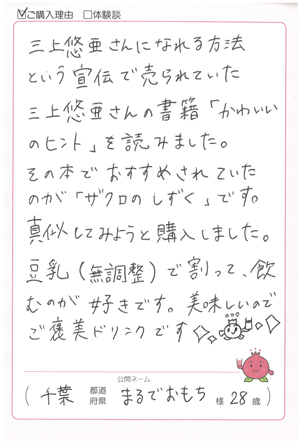 ☑ご購入理由 □体験談
三上悠亜さんになれる方法
という宣伝で売られていた
三上悠亜さんの書籍「かわいい
のヒント」を読みました。
その本でおすすめされていた
のが「ザクロのしずく」です。
真似してみようと購入しました。
豆乳(無調整)で割って、飲
むのが好きです。美味しいので
ご褒美ドリンクです
公開ネーム
(千葉 都道府県 まるでおもち 様 28歳)